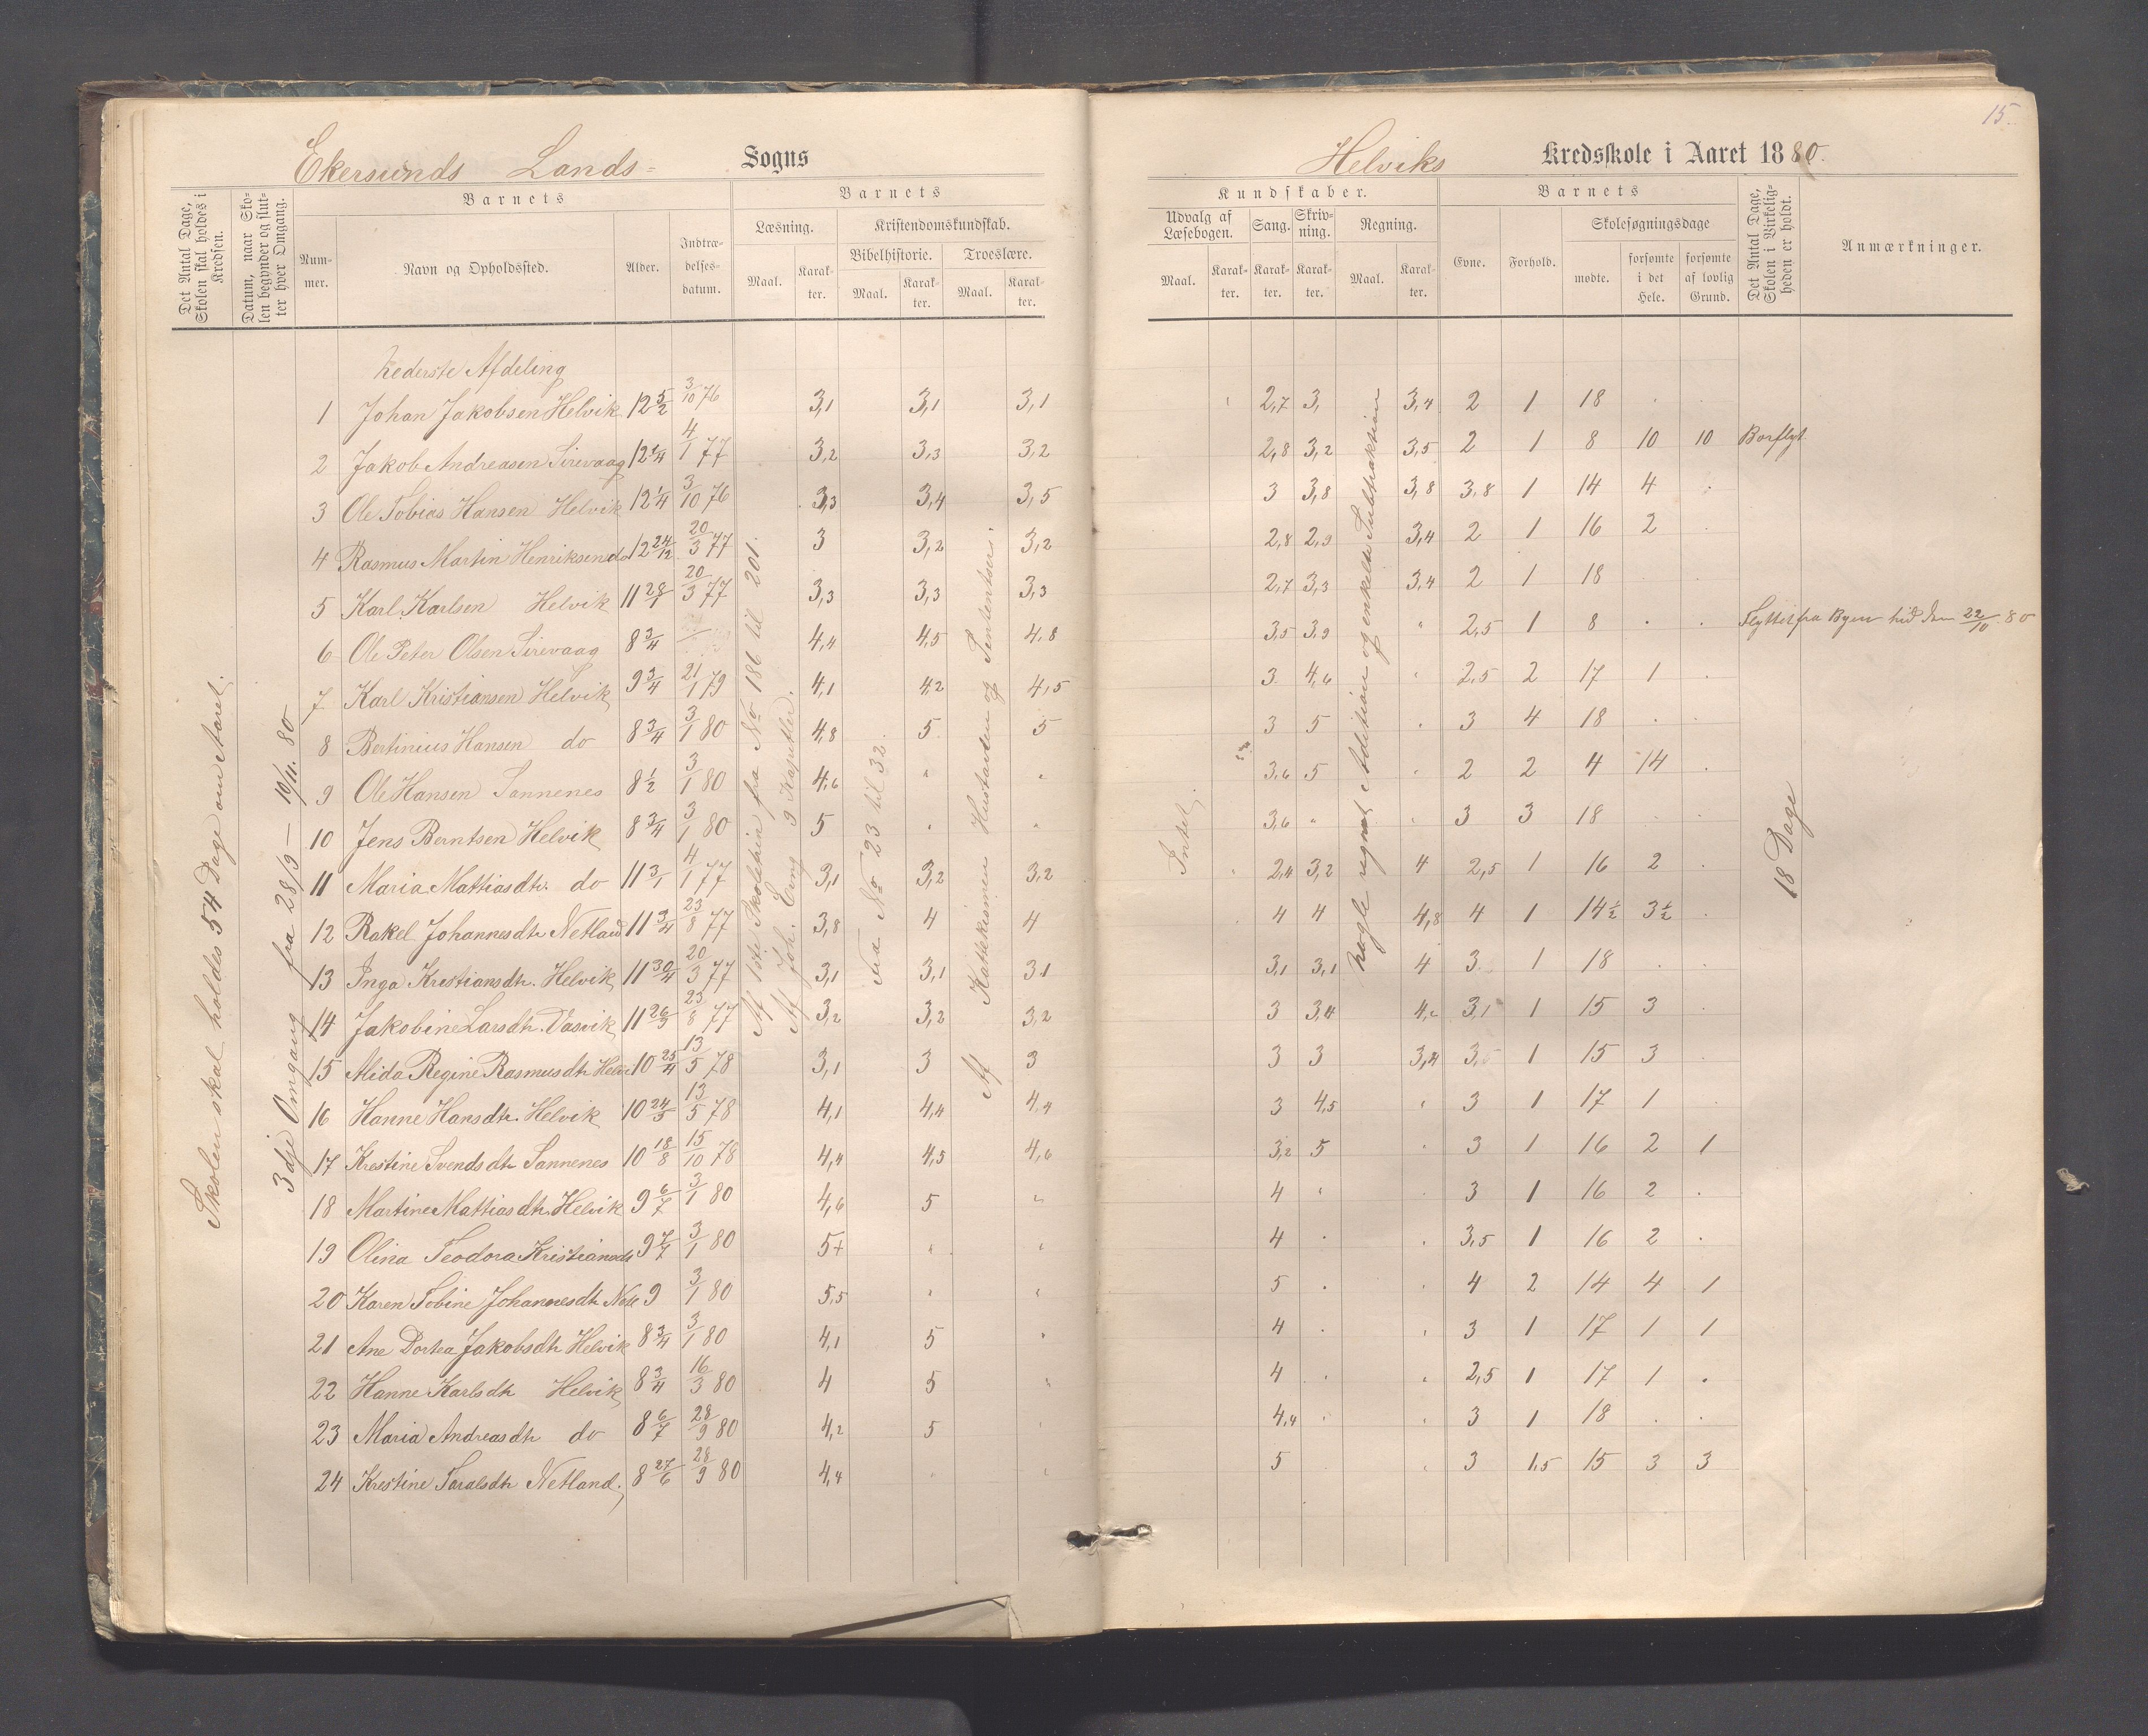 15.
Ekersunds Lands- Sogns
Helviks Kredsskole i Aaret 1880.
Det Antal Dage, Skolen skal holdes i Kredsen.
Datum, naar Skolen begynder og slutter hver Omgang.
Barnets
Nummer.
Navn og Opholdssted.
Alder.
Indtrædelsesdatum.
Barnets
Læsning.
Maal. Karakter.
Kristendomskundskab.
Bibelhistorie.
Maal. Karakter.
Troeslære.
Maal. Karakter.
Kundskaber.
Udvalg af Læsebogen.
Maal. Karakter.
Sang. Karakter.
Skrivning. Karakter.
Regning.
Maal. Karakter.
Barnets
Evne. Forhold.
Skolesøgningsdage
mødte. forsømte i det Hele. forsømte af lovlig Grund.
Det Antal Dage, Skolen i Virkeligheden er holdt.
Anmærkninger.
Skolen skal holdes 54 Dage om Aaret.
3dje Omgang fra 28/9 — 10/11. 80
Af 1ste Skoletrin fra No 186 til 201.
Af Joh. Evng 9 Kapitler.
Fra No 23 til 32.
Af Katekismen Hustavlen og Sentenser.
Intet.
Nogle regnet Addition og enkelte Subtraktion
18 Dage
Nederste Afdeling
1 Johan Jakobsen Helvik 12 5/2 3/10 76 3,1 3,1 3,1 2,7 3, 3,4 2 1 18
2 Jakob Andreasen Sirevaag 12 1/4 4/1 77 3,2 3,3 3,2 2,8 3,2 3,5 2 1 8 10 10 Borflyt
3 Ole Tobias Hansen Helvik 12 1/4 3/10 76 3,3 3,4 3,5 3 3,8 3,8 3,8 1 14 4
4 Rasmus Martin Henriksen do 12 24/12 20/3 77 3 3,2 3,2 2,8 2,9 3,4 2 1 16 2
5 Karl Karlsen Helvik 11 28/1 20/3 77 3,3 3,3 3,3 2,7 3,3 3,4 2 1 18
6 Ole Peter Olsen Sirevaag 8 3/4 4,4 4,5 4,8 3,5 3,9 " 2,5 1 8 . . Flyttet fra Byen hid den 22/10 80
7 Karl Kristiansen Helvik 9 3/4 21/1 79 4,1 4,2 4,5 3 4,6 " 2,5 2 17 1 .
8 Bertinius Hansen do 8 3/4 3/1 80 4,8 5 5 3 5 " 3 4 18 . .
9 Ole Hansen Tannenes 8 1/2 3/1 80 4,6 " " 3,6 5 " 2 2 4 14 .
10 Jens Berntsen Helvik 8 3/4 3/1 80 5 " " 3,6 " " 3 3 18 . .
11 Maria Mattiasdtr. do 11 3/1 4/1 77 3,1 3,2 3,2 2,4 3,2 4 2,5 1 16 2 .
12 Rakel Johannesdtr Netland 11 3/4 23/8 77 3,8 4 4 4 4 4,8 4 1 14 1/2 3 1/2 .
13 Inga Krestiansdtr. Helvik 11 30/4 20/3 77 3,1 3,1 3,1 3,1 3,1 4 3 1 18 . .
14 Jakobine Larsdtr. Vasvik 11 26/9 23/8 77 3,2 3,2 3,2 3 3,4 3,1 1 15 3 .
15 Alida Regine Rasmusdtr Helv 10 25/4 13/5 78 3,1 3 3 3 3 3,4 1 15 3
16 Hanne Hansdtr. Helvik 10 24/5 13/5 78 4,1 4,4 4,4 3 4,5 " 3 1 17 1 .
17 Krestine Svendsdtr Tannenes 10 18/8 15/10 78 4,4 4,5 4,6 3,2 5 " 3 1 16 2 1
18 Martine Mattiasdtr. Helvik 9 6/7 3/1 80 4,6 5 " 4 " 3 1 16 2 .
19 Olina Teodora Kristiansdtr 9 7/7 3/1 80 5+ " " 4 . " 3,5 1 16 2 .
20 Karen Tobine Johannesdtr Netl 9 3/1 80 5,5 " " 5 . 4 2 14 4 1
21 Ane Dortea Jakobsdtr Helvik 8 3/4 3/1 80 4,1 5 " 4 . " 3 1 17 1 1
22 Hanne Karlsdtr Helvik 8 3/4 16/3 80 4 5 " 4 . " 2,5 1 17 1 .
23 Maria Andreasdtr do 8 6/7 28/9 80 4,2 5 " 4,4 . " 3 1 18 . .
24 Krestine Taralsdtr Netland. 8 27/6 28/9 80 4,4 " " 5 " 3 1,5 15 3 3